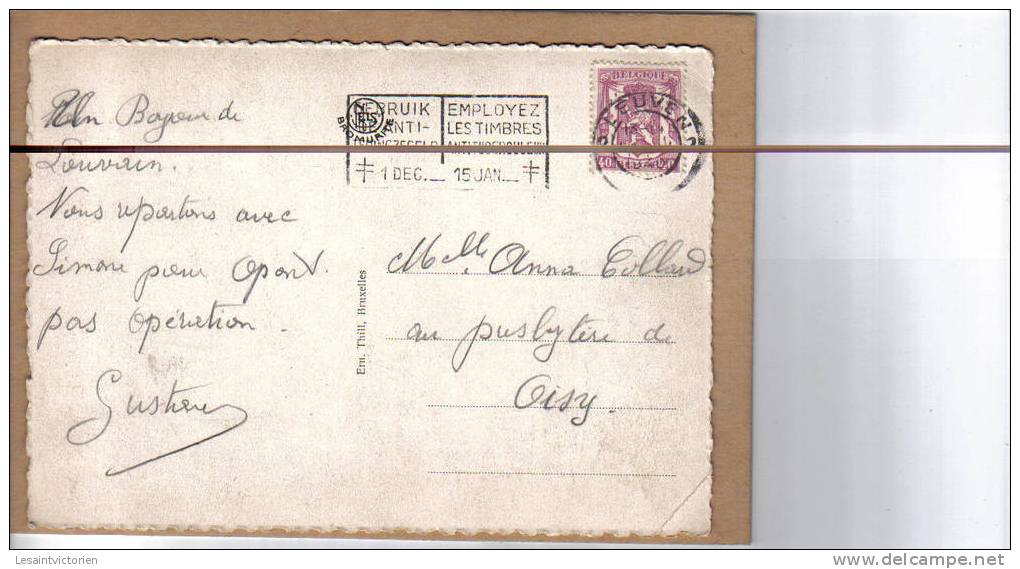 Bonjour de
Louvain.
Nous repartons avec
Simone pour
pas Opération.
Gustave
GEBRUIK
ANTI-
EMPLOYEZ
LES TIMBRES
ANTITUBERCULEUX
1 DEC. 15 JAN.
NELS
BROMURITE
BELGIQUE
40
LEUVEN
Ern. Thill, Bruxelles
Melle Anna Collard
au presbytère de
Oisy.
Lesaintvictorien
delcampe.net